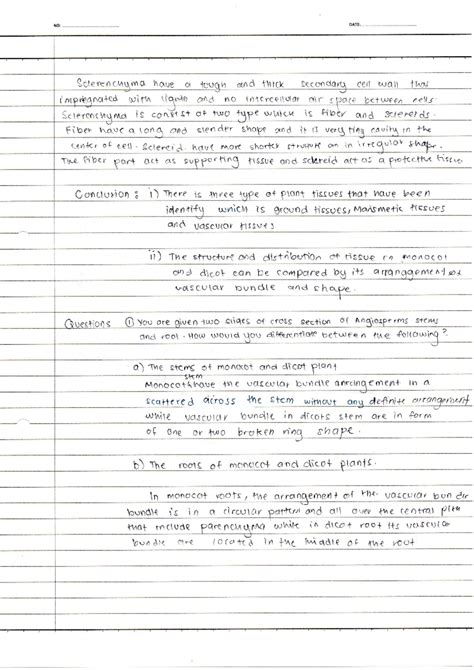 NO.
DATE.
Sclerenchyma have a tough and thick secondary cell wall that
impregnated with lignin and no intercellular air space between cells.
Sclerenchyma is consist of two type which is fiber and sclereids.
Fiber have a long and slender shape and it is very tiny cavity in the
center of cell. Sclereid have more shorter structure an in irregular shape.
The fiber part act as supporting tissue and sclereid act as a protective tissue
Conclusion : i) There is three type of plant tissues that have been
identify which is ground tissues, Marismetic tissues
and vascular tissues
ii) The structure and distribution of tissue in monocot
and dicot can be compared by its arrangagement of
vascular bundle and shape.
Questions ① You are given two slides of cross section of Angiosperms stems
and root. How would you differentiate between the following?
a) The stems of monocot and dicot plant
stem
Monocots have the vascular bundle arrcingement in a
scattered across the stem without any definite arrangement
while vascular bundle in dicots stem are in form
of one or two broken ring shape.
b) The roots of monocot and dicot plants.
In monocot roots, the arrangement of the vascular bundle
bundle is in a circular pattern and all over the central pith
that include parenchyma while in dicot root its vascular
bundle are located in the middle of the root